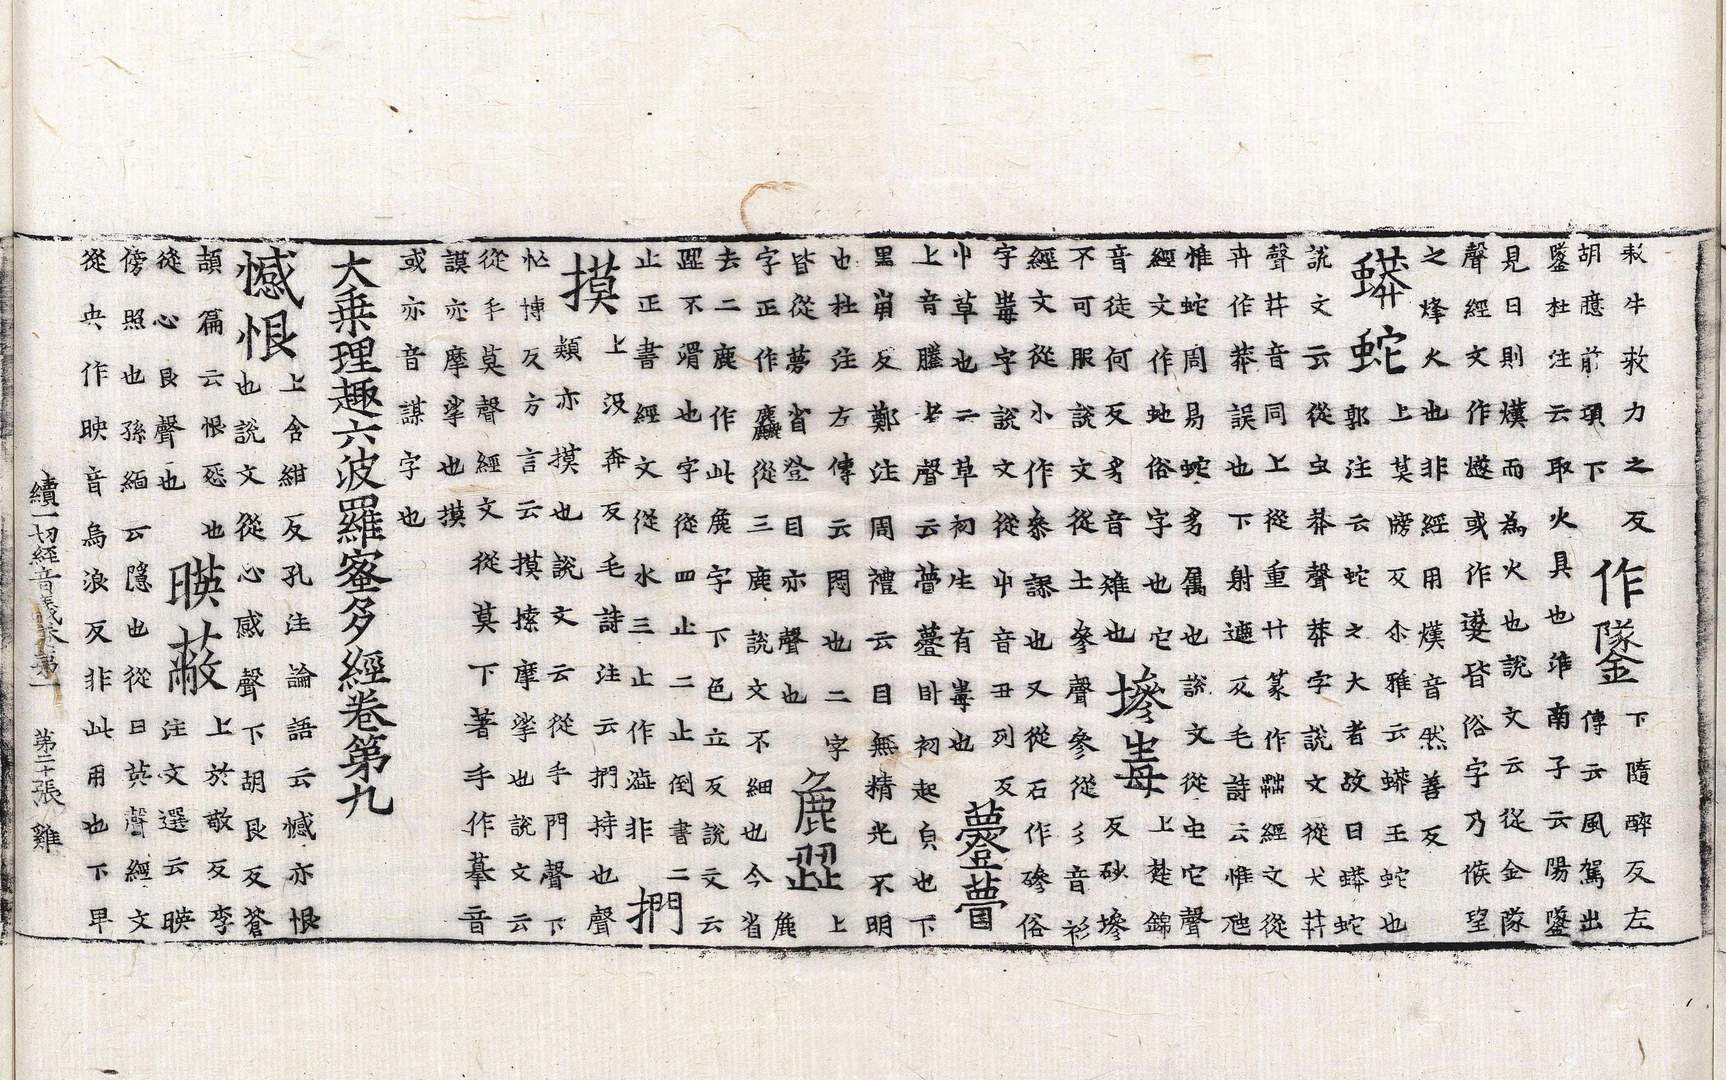 敕牛救力之反作㸂下隨醉反左
胡臆前項下傳云風駕出
鐆杜注云取火具也淮南子云陽鐆
見日則熯而為火也說文云從金隊
聲經文作燧或作䥙皆俗字乃候望
之烽火也非經用熯音然善反
蟒蛇上莫牓反尒雅云蟒王蛇也
郭注云蛇之大者故曰蟒蛇
說文云從虫茻聲茻字說文從犬茻
聲茻音同上從重廾篆作茻經文從
卉作莽誤也下射遮反毛詩云惟虺
惟蛇周易蛇豸属也說文從虫它聲
經文作虵俗字也它音徒何反豸音雉也
墋毒上楚錦反砂墋
不可服說文從土參聲參從彡音衫
經文從小作㕘謬也又從石作磣俗
字毒字說文從屮音丑列反
屮草也二草初生有毒也
薹瞢上音騰去聲云薹瞢目初起皃也下
黑崩反鄭注周禮云目無精光不明
也杜注左傳云悶也二字
皆從夢省登目亦聲也
麁澀上
字正作麤從三鹿說文不細也今省
去二鹿作此麁字下色立反說文云
澀不滑也字從四止二止倒書二
止正書經文從水三止作澁非
捫摸上沒奔反毛詩注云捫持也聲
類亦摸也說文云從手門聲下
忙博反方言云摸揉摩挲也說文云
從手莫聲經文從莫下著手作摹音
謨亦摩挲也摸
或亦音謀字也
大乗理趣六波羅蜜多經卷第九
憾恨上含紺反孔注論語云憾亦恨
也說文從心感聲下胡艮反蒼
頡篇云恨惡也
從心艮聲也
暎蔽上於敬反李
注文選云暎
傍照也孫緬云隱也從日英聲經文
從央作映音烏浪反非此用也下早
續一切經音義卷第一　第二十張　雞